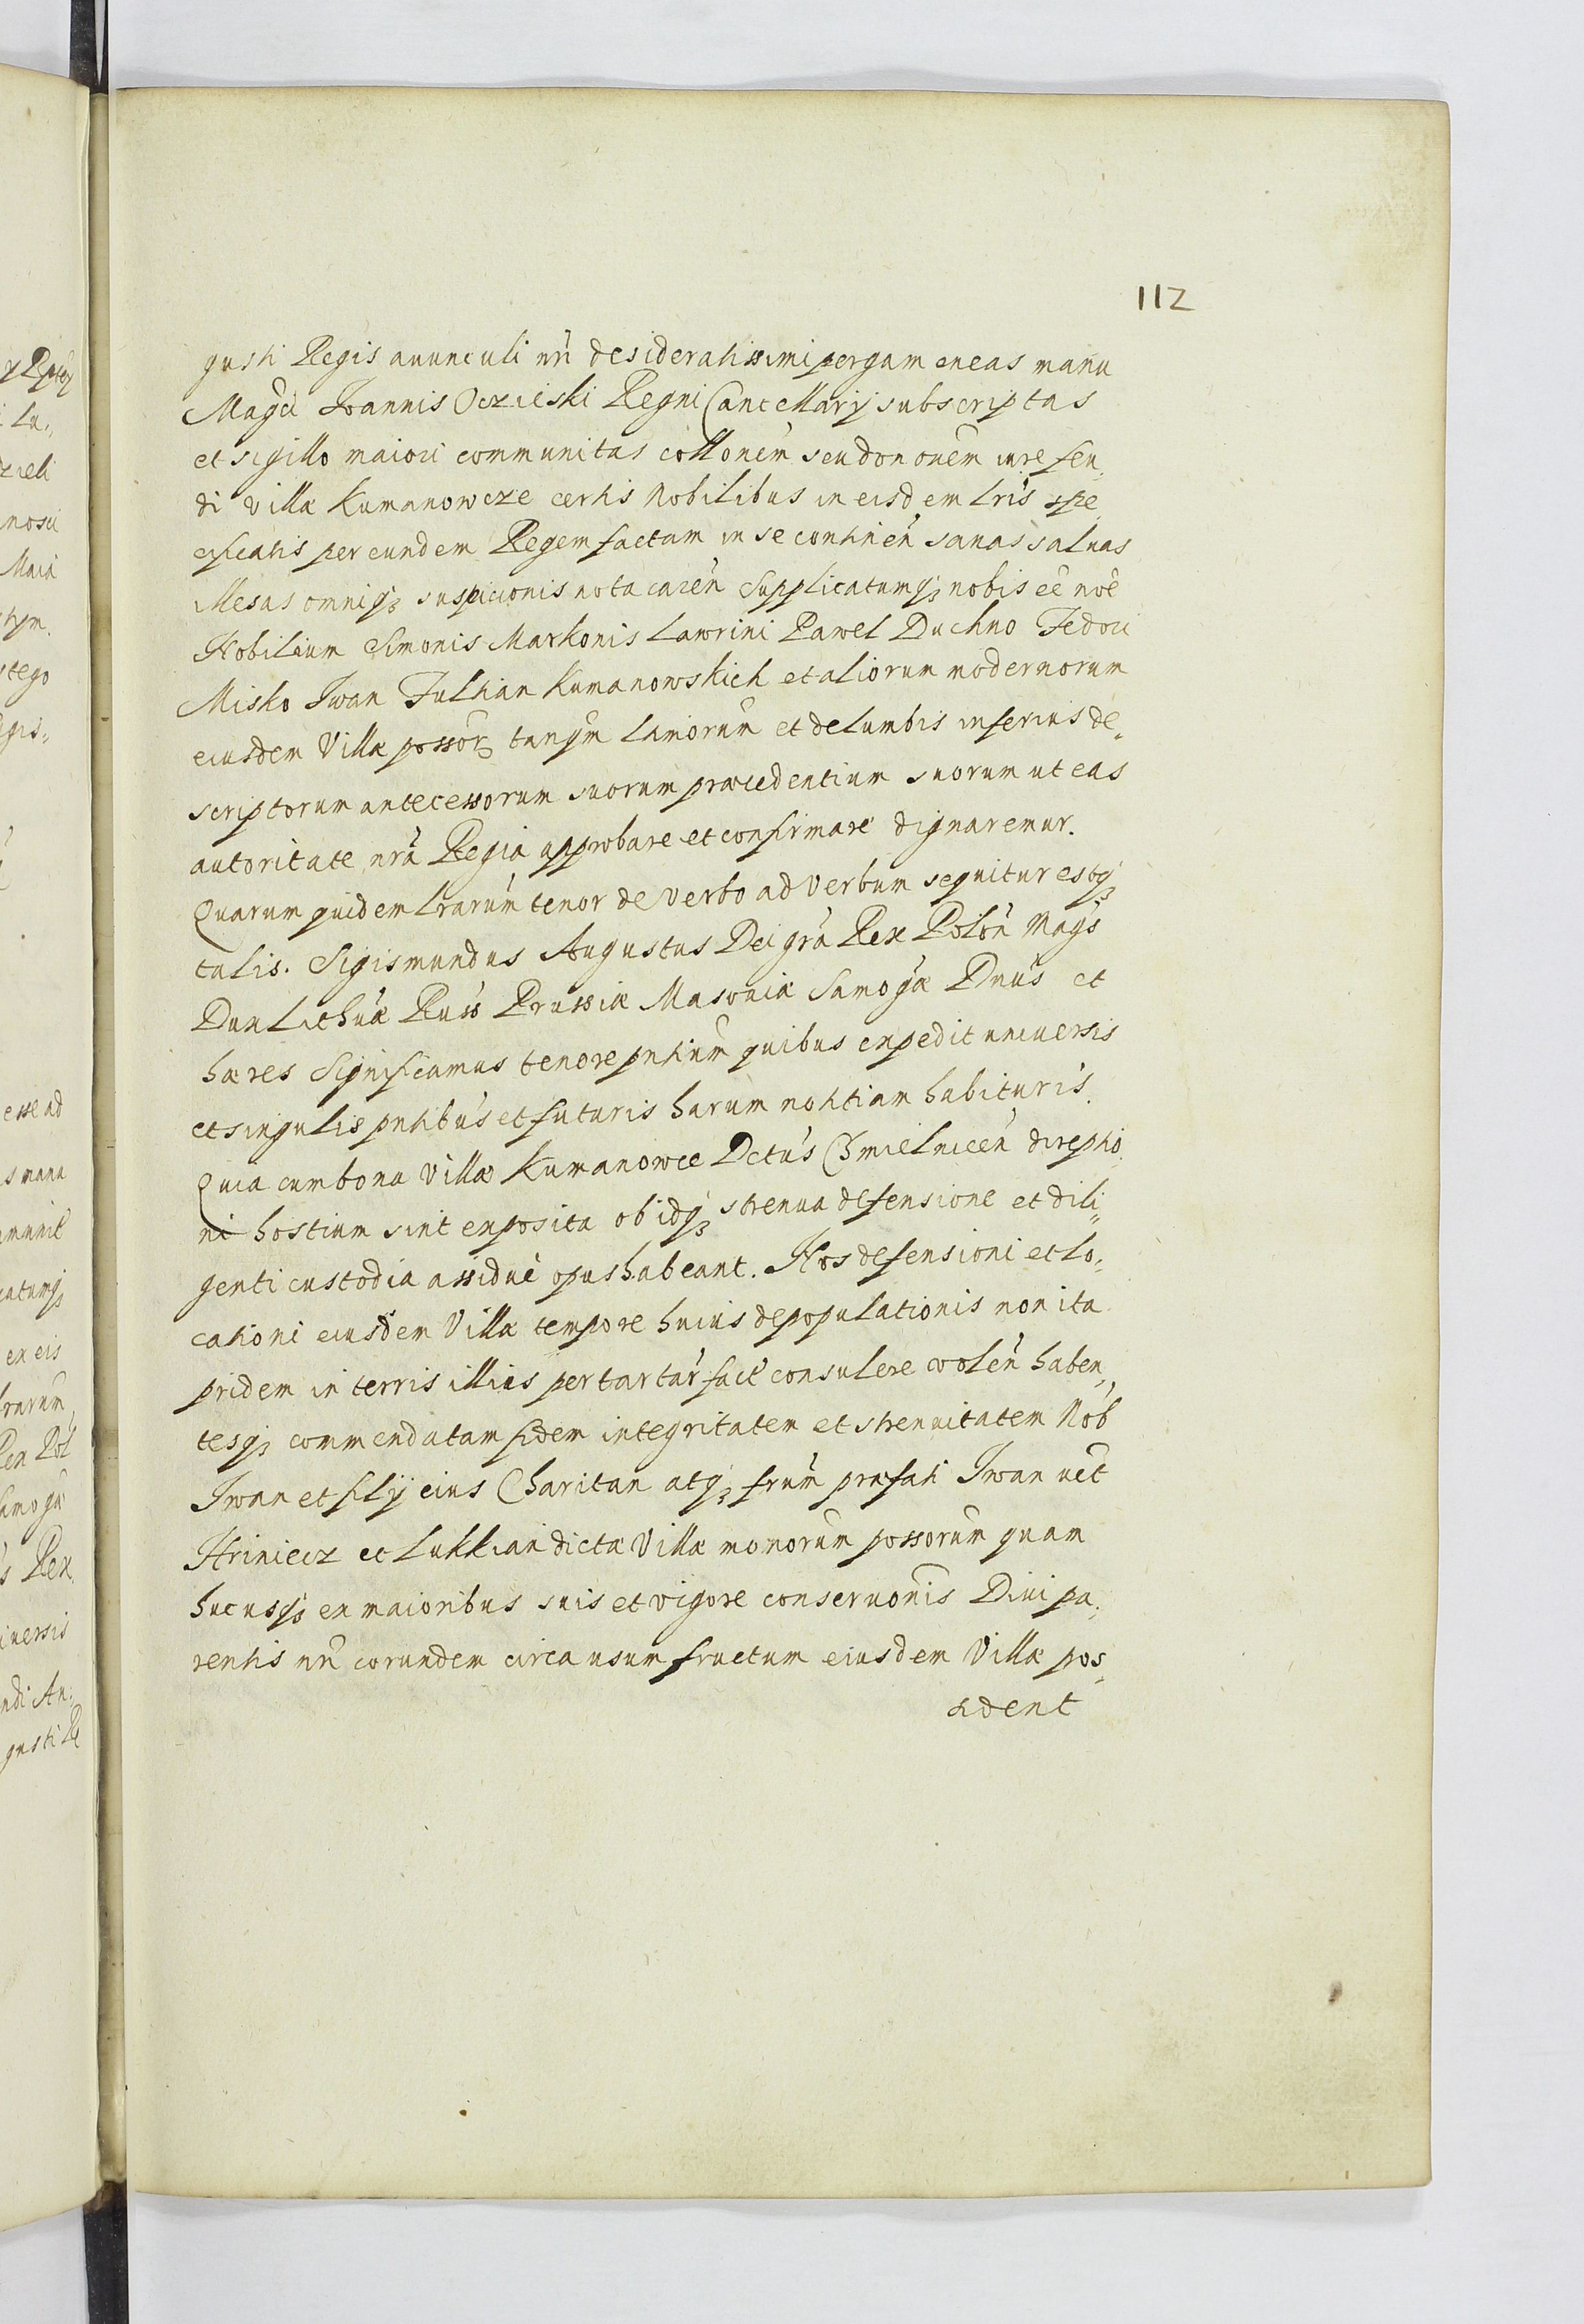 112
gusti Regis auunculi nri desideratissimi pergameneas manu
Magci Ioannis Oczieski Regni Cancellarij subscriptas
et sigillo maiori communitas collonem seu dononem iure feu„
di villæ Kumanowcze certis Nobilibus in eisdem lris spe„
cificatis per eundem Regem factam in se continen sanas saluas
illesas omniq; suspicionis nota caren Supplicatumq; nobis eē noē
Nobilium Simonis Markonis Lawrini Pawel Duchno Fedori
Misko Iwan Fulhian Kumanowskich et aliorum modernorum
eiusdem Villæ possor tanqm et inferius de„
scriptorum antecessorum suorum præcedentium suorum ut eas
autoritate nrā Regia approbare et confirmare dignaremur.
Quarum quidem lrarum tenor de verbo ad verbum sequitur estq;
talis. Sigismundus Augustus Dei gra Rex Polon Mags
Dux Lithuæ Russ Prussiæ Masouiæ Samogæ Dnus et
hæres Significamus tenore pntium quibus expedit uniuersis
et singulis pntibus et futuris harum notitiam habituris.
Quia cum bona Villæ Kumanowce Dctus Chmielnicen direptio„
ni hostium sint exposita ob idq; strenua defensione et dili„
genti custodia assidue opus habeant. Nos defensioni et lo„
cationi eiusdem Villæ tempore huius depopulationis non ita
pridem in terris illius per tartar fact consulere volen haben„
tesq; commendatam fidem integritatem et strenuitatem Nob
Iwan et filij eius Charitan atq; frum præfati Iwan uct
Hriniecz et Lukkian dictæ Villæ possorum quam
hucusq; ex maioribus suis et vigore conseruonis Diui pa„
rentis nri eorundem circa usumfructum eiusdem Villæ pos„
sident